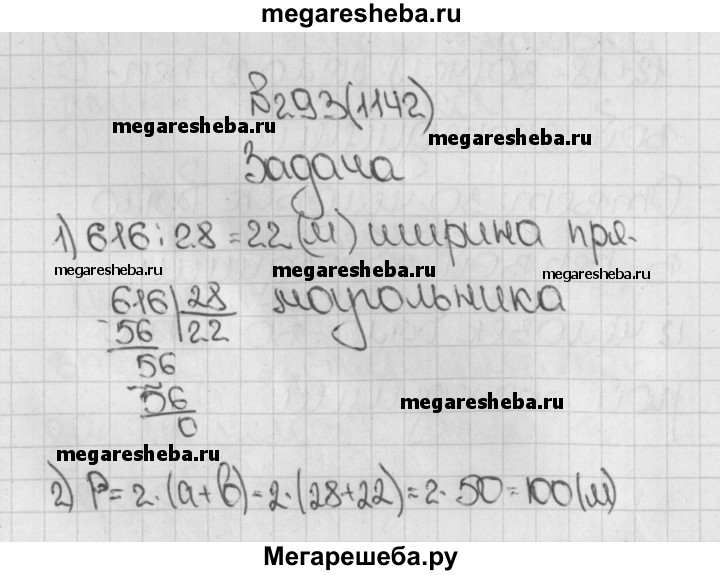 megaresheba.ru
В293(1142)
megaresheba.ru
megaresheba.ru
Задача
1) 616:28=22(м) ширина пря-
megaresheba.ru
megaresheba.ru
моугольника
616|28
-56 |22
56
-56
0
megaresheba.ru
megaresheba.ru
2) P=2·(a+b)=2·(28+22)=2·50=100(м)
Мегарешеба.ру